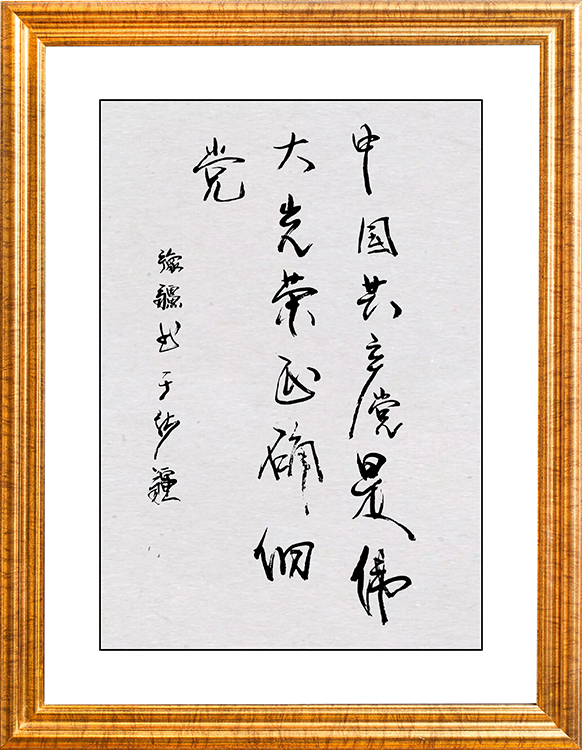 中国共产党是伟
大光荣正确的
党
疆书于疆